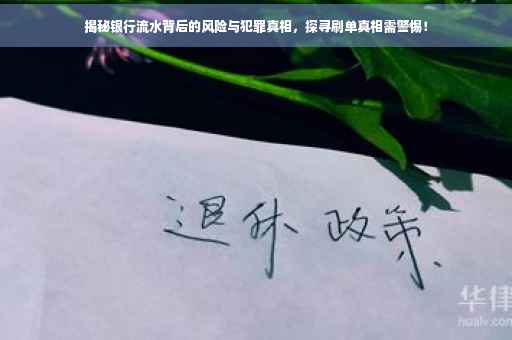 揭秘银行流水背后的风险与犯罪真相，探寻刷单真相需警惕！
退休 政策
华律
hualv.com